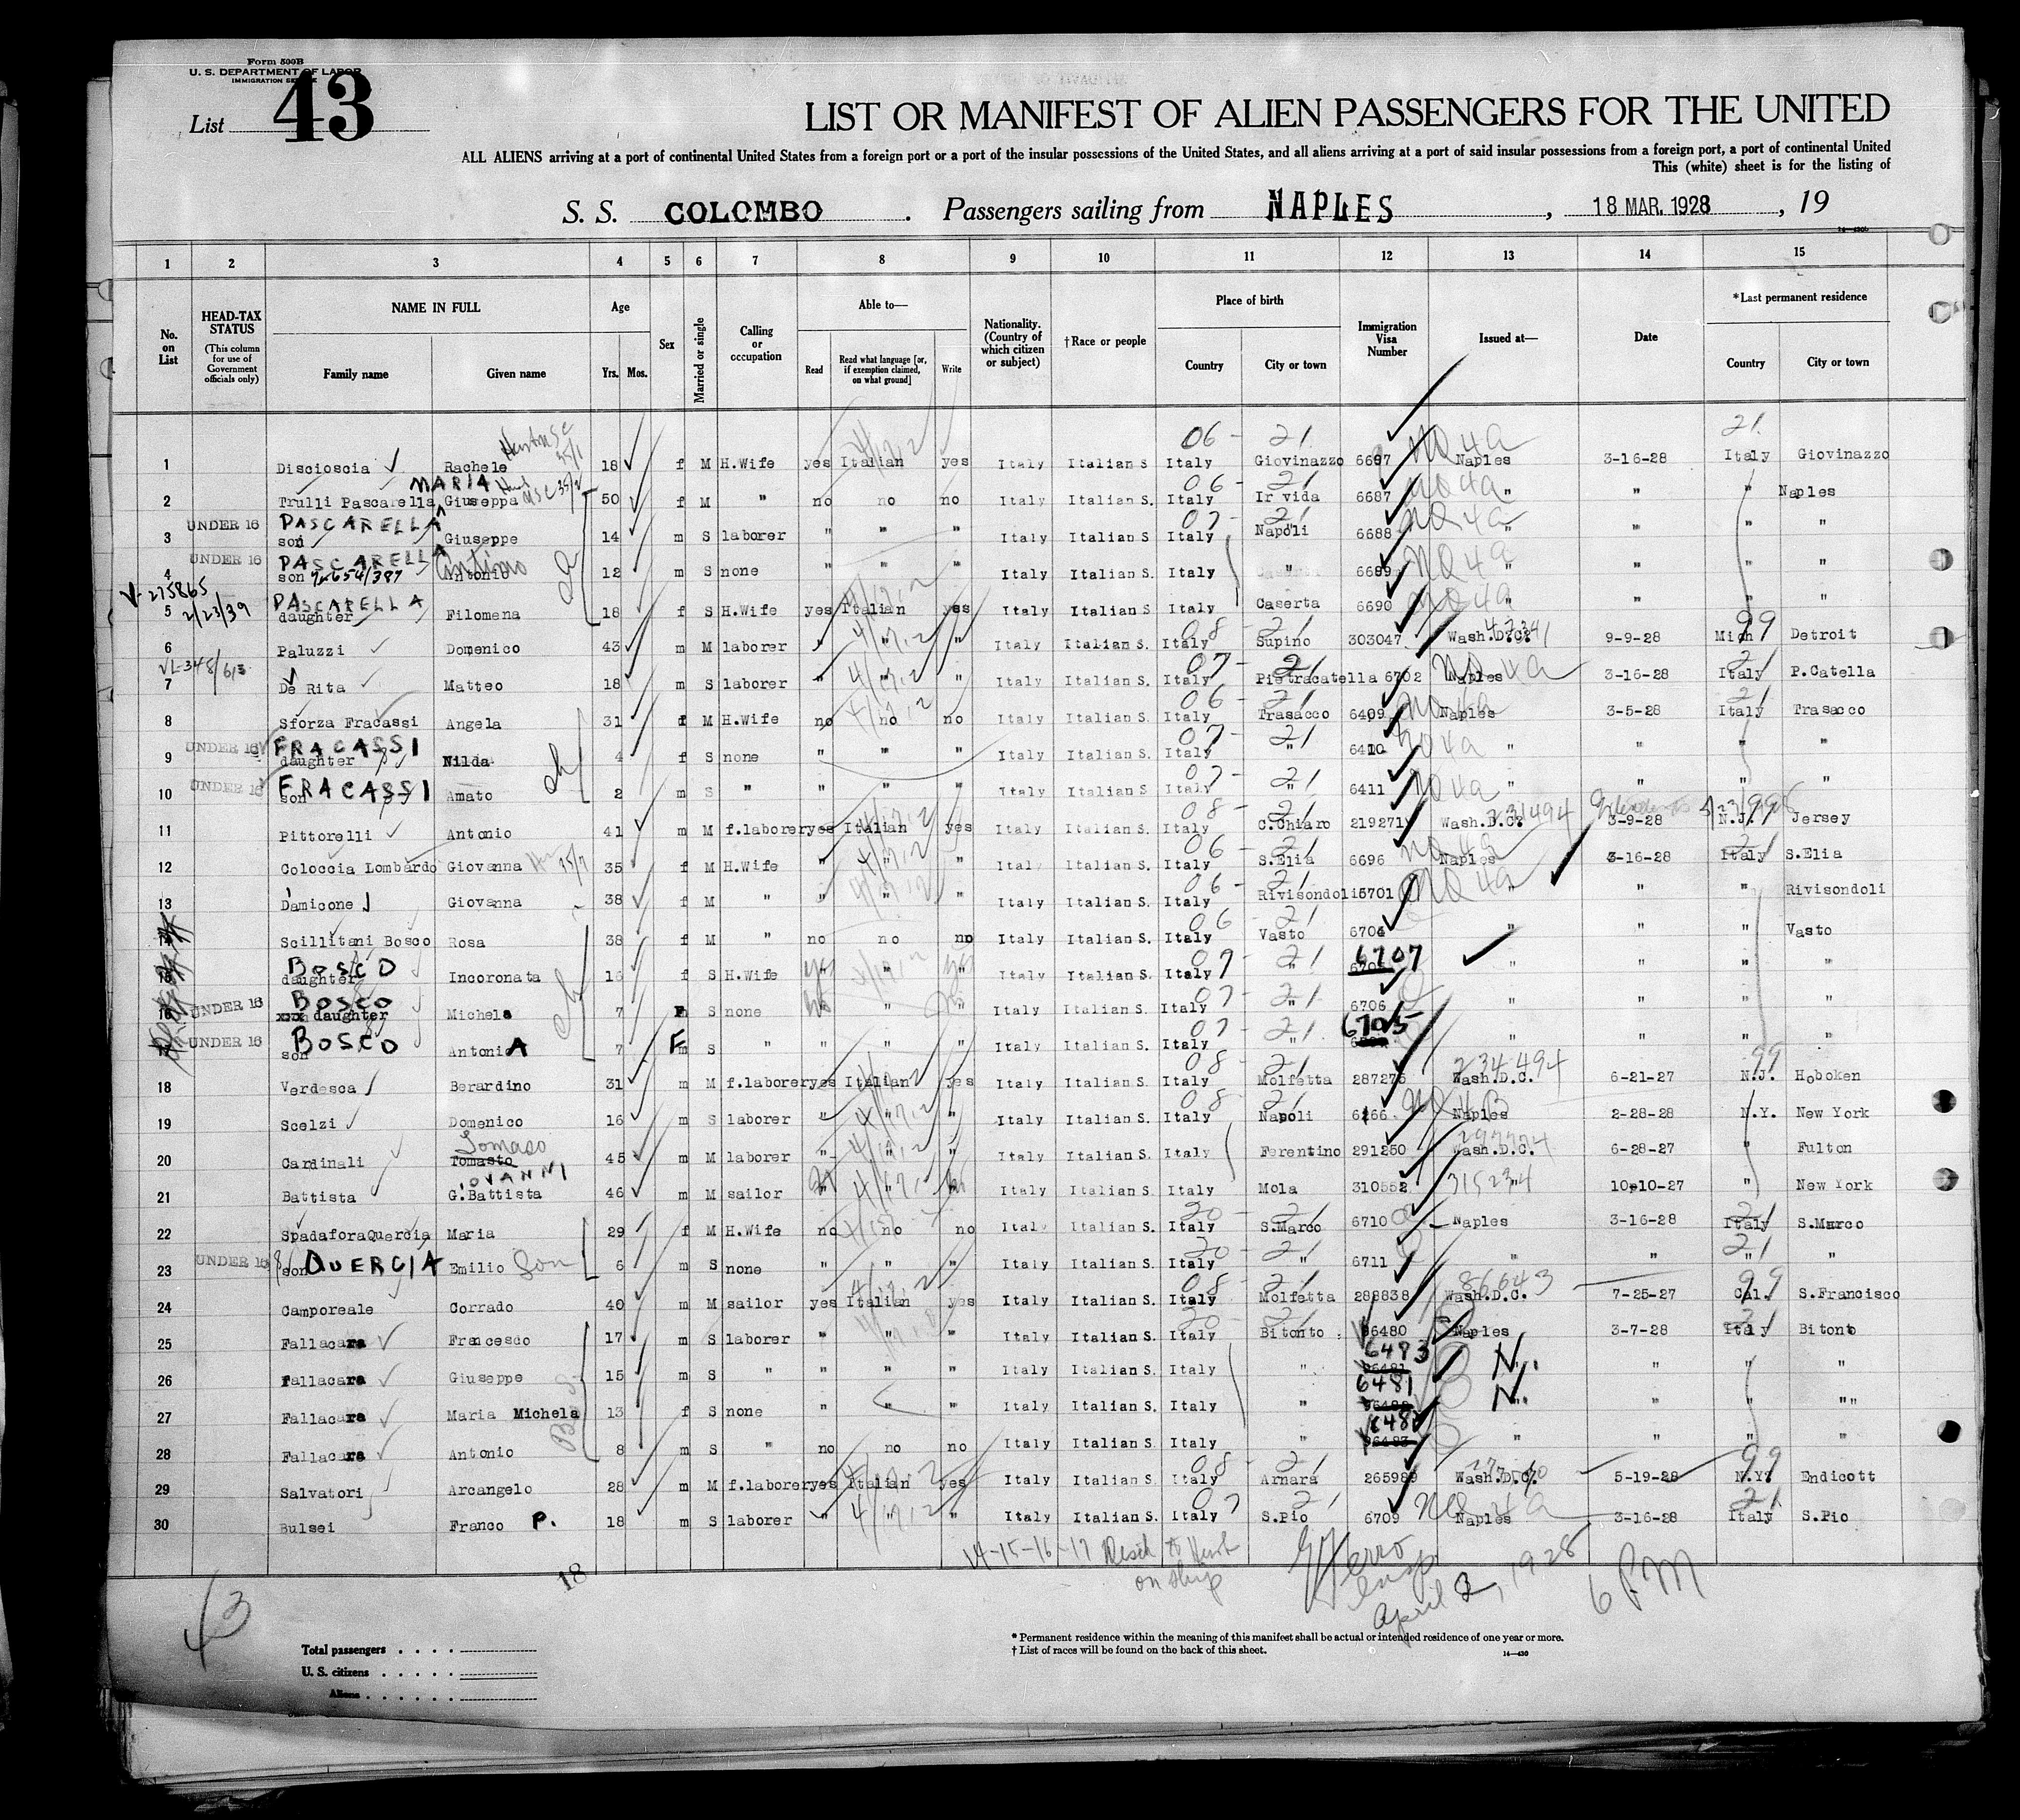 Form 500B
U. S. DEPARTMENT OF LABOR
IMMIGRATION SERVICE
List 43
LIST OR MANIFEST OF ALIEN PASSENGERS FOR THE UNITED
ALL ALIENS arriving at a port of continental United States from a foreign port or a port of the insular possessions of the United States, and all aliens arriving at a port of said insular possessions from a foreign port, a port of continental United
This (white) sheet is for the listing of
S. S. COLOMBO. Passengers sailing from NAPLES, 18 MAR. 1928, 19
14—430b
1 2 3 4 5 6 7 8 9 10 11 12 13 14 15
No. on List
HEAD-TAX STATUS (This column for use of Government officials only)
NAME IN FULL Family name Given name
Age Yrs. Mos.
Sex
Married or single
Calling or occupation
Able to— Read Read what language [or, if exemption claimed, on what ground] Write
Nationality. (Country of which citizen or subject)
†Race or people
Place of birth Country City or town
Immigration Visa Number
Issued at—
Date
*Last permanent residence Country City or town
06 - 21 NO 4a 21
1 Discioscia Rachele 18 f M H.Wife yes Italian yes Italy Italian S Italy Giovinazzo 6697 Naples 3-16-28 Italy Giovinazzo
MARIA
2 Trulli Pascarella Giuseppa 50 f M " no no no Italy Italian S. Italy Ir vida 6687 " " " Naples
UNDER 16 PASCARELLA
3 son Giuseppe 14 m S laborer " " " Italy Italian S. Italy Napoli 6688 " " " "
UNDER 16 PASCARELLA Antonio
4 son 12 m S none " " " Italy Italian S. Italy " 6689 " " "
V-275865
2/23/39 PASCARELLA
5 daughter Filomena 18 f S H.Wife yes Italian yes Italy Italian S Italy Caserta 6690 " " " "
6 Paluzzi Domenico 43 m M laborer " " " Italy Italian S. Italy Supino 303047 Wash.D.C. 9-9-28 Mich Detroit
7 De Rita Matteo 18 m S laborer " " " Italy Italian S. Italy Pietracatella 6702 Naples 3-16-28 Italy P.Catella
8 Sforza Fracassi Angela 31 f M H.Wife no no no Italy Italian S. Italy Trasacco 6409 Naples 3-5-28 Italy Trasacco
UNDER 16 FRACASSI
9 daughter Nilda 4 f S none " " " Italy Italian S. Italy " 6410 " " " "
UNDER 16 FRACASSI
10 son Amato 2 m S " " " " Italy Italian S. Italy " 6411 " " " "
11 Pittorelli Antonio 41 m M f.laborer yes Italian yes Italy Italian S. Italy C.Chiaro 219271 Wash.D.C. 3-9-28 N.J. Jersey
12 Coloccia Lombardo Giovanna 35 f M H.Wife " " " Italy Italian S. Italy S.Elia 6696 Naples 3-16-28 Italy S.Elia
13 Damicone Giovanna 38 f M " " " " Italy Italian S. Italy Rivisondoli 5701 " " " Rivisondoli
Scillitani Bosco Rosa 38 f M " no no no Italy Italian S. Italy Vasto 6704 " " " Vasto
BOSCO 6707
daughter Incoronata 16 f S H.Wife " " " Italy Italian S. Italy " " " " "
UNDER 16 BOSCO
xxx daughter Michela 7 S none " " " Italy Italian S. Italy " 6706 " " " "
UNDER 16 BOSCO 6705
son AntoniA 7 F S " " " " Italy Italian S. Italy " " " " "
18 Verdesca Berardino 31 m M f.laborer yes Italian yes Italy Italian S. Italy Molfetta 287276 Wash.D.C. 6-21-27 N.J. Hoboken
19 Scelzi Domenico 16 m S laborer " " " Italy Italian S. Italy Napoli 6266 Naples 2-28-28 N.Y. New York
Tomaso
20 Cardinali Tomasto 45 m M laborer " " " Italy Italian S. Italy Ferentino 291250 Wash.D.C. 6-28-27 " Fulton
IOVANNI
21 Battista G.Battista 46 m M sailor " " " Italy Italian S. Italy Mola 310552 " 10-10-27 " New York
22 Spadafora Quercia Maria 29 f M H.Wife no no no Italy Italian S. Italy S.Marco 6710 Naples 3-16-28 Italy S.Marco
UNDER 16 QUERCIA
23 son Emilio Son 6 m S none " " " Italy Italian S. Italy " 6711 " " " "
24 Camporeale Corrado 40 m M sailor yes Italian yes Italy Italian S. Italy Molfetta 288838 Wash.D.C. 7-25-27 Cal. S.Francisco
25 Fallacara Francesco 17 m S laborer " " " Italy Italian S. Italy Bitonto 6480 Naples 3-7-28 Italy Bitonto
6483 N.
26 Fallacara Giuseppe 15 m S " " " " Italy Italian S. Italy " " " "
6481 N.
27 Fallacara Maria Michela 13 f S none " " " Italy Italian S. Italy " " " ""
28 Fallacara Antonio 8 m S " no no no Italy Italian S. Italy " " " " "
29 Salvatori Arcangelo 28 m M f.laborer yes Italian yes Italy Italian S. Italy Arnara 265989 Wash.D.C. 5-19-28 N.Y. Endicott
30 Bulsei Franco P. 18 m S laborer " " " Italy Italian S. Italy S.Pio 6709 Naples 3-16-28 Italy S.Pio
14-15-16-17 to
on ship
April 2, 1928 6 P.M
18
43
Total passengers
U. S. citizens
Aliens
* Permanent residence within the meaning of this manifest shall be actual or intended residence of one year or more.
† List of races will be found on the back of this sheet.
14—430